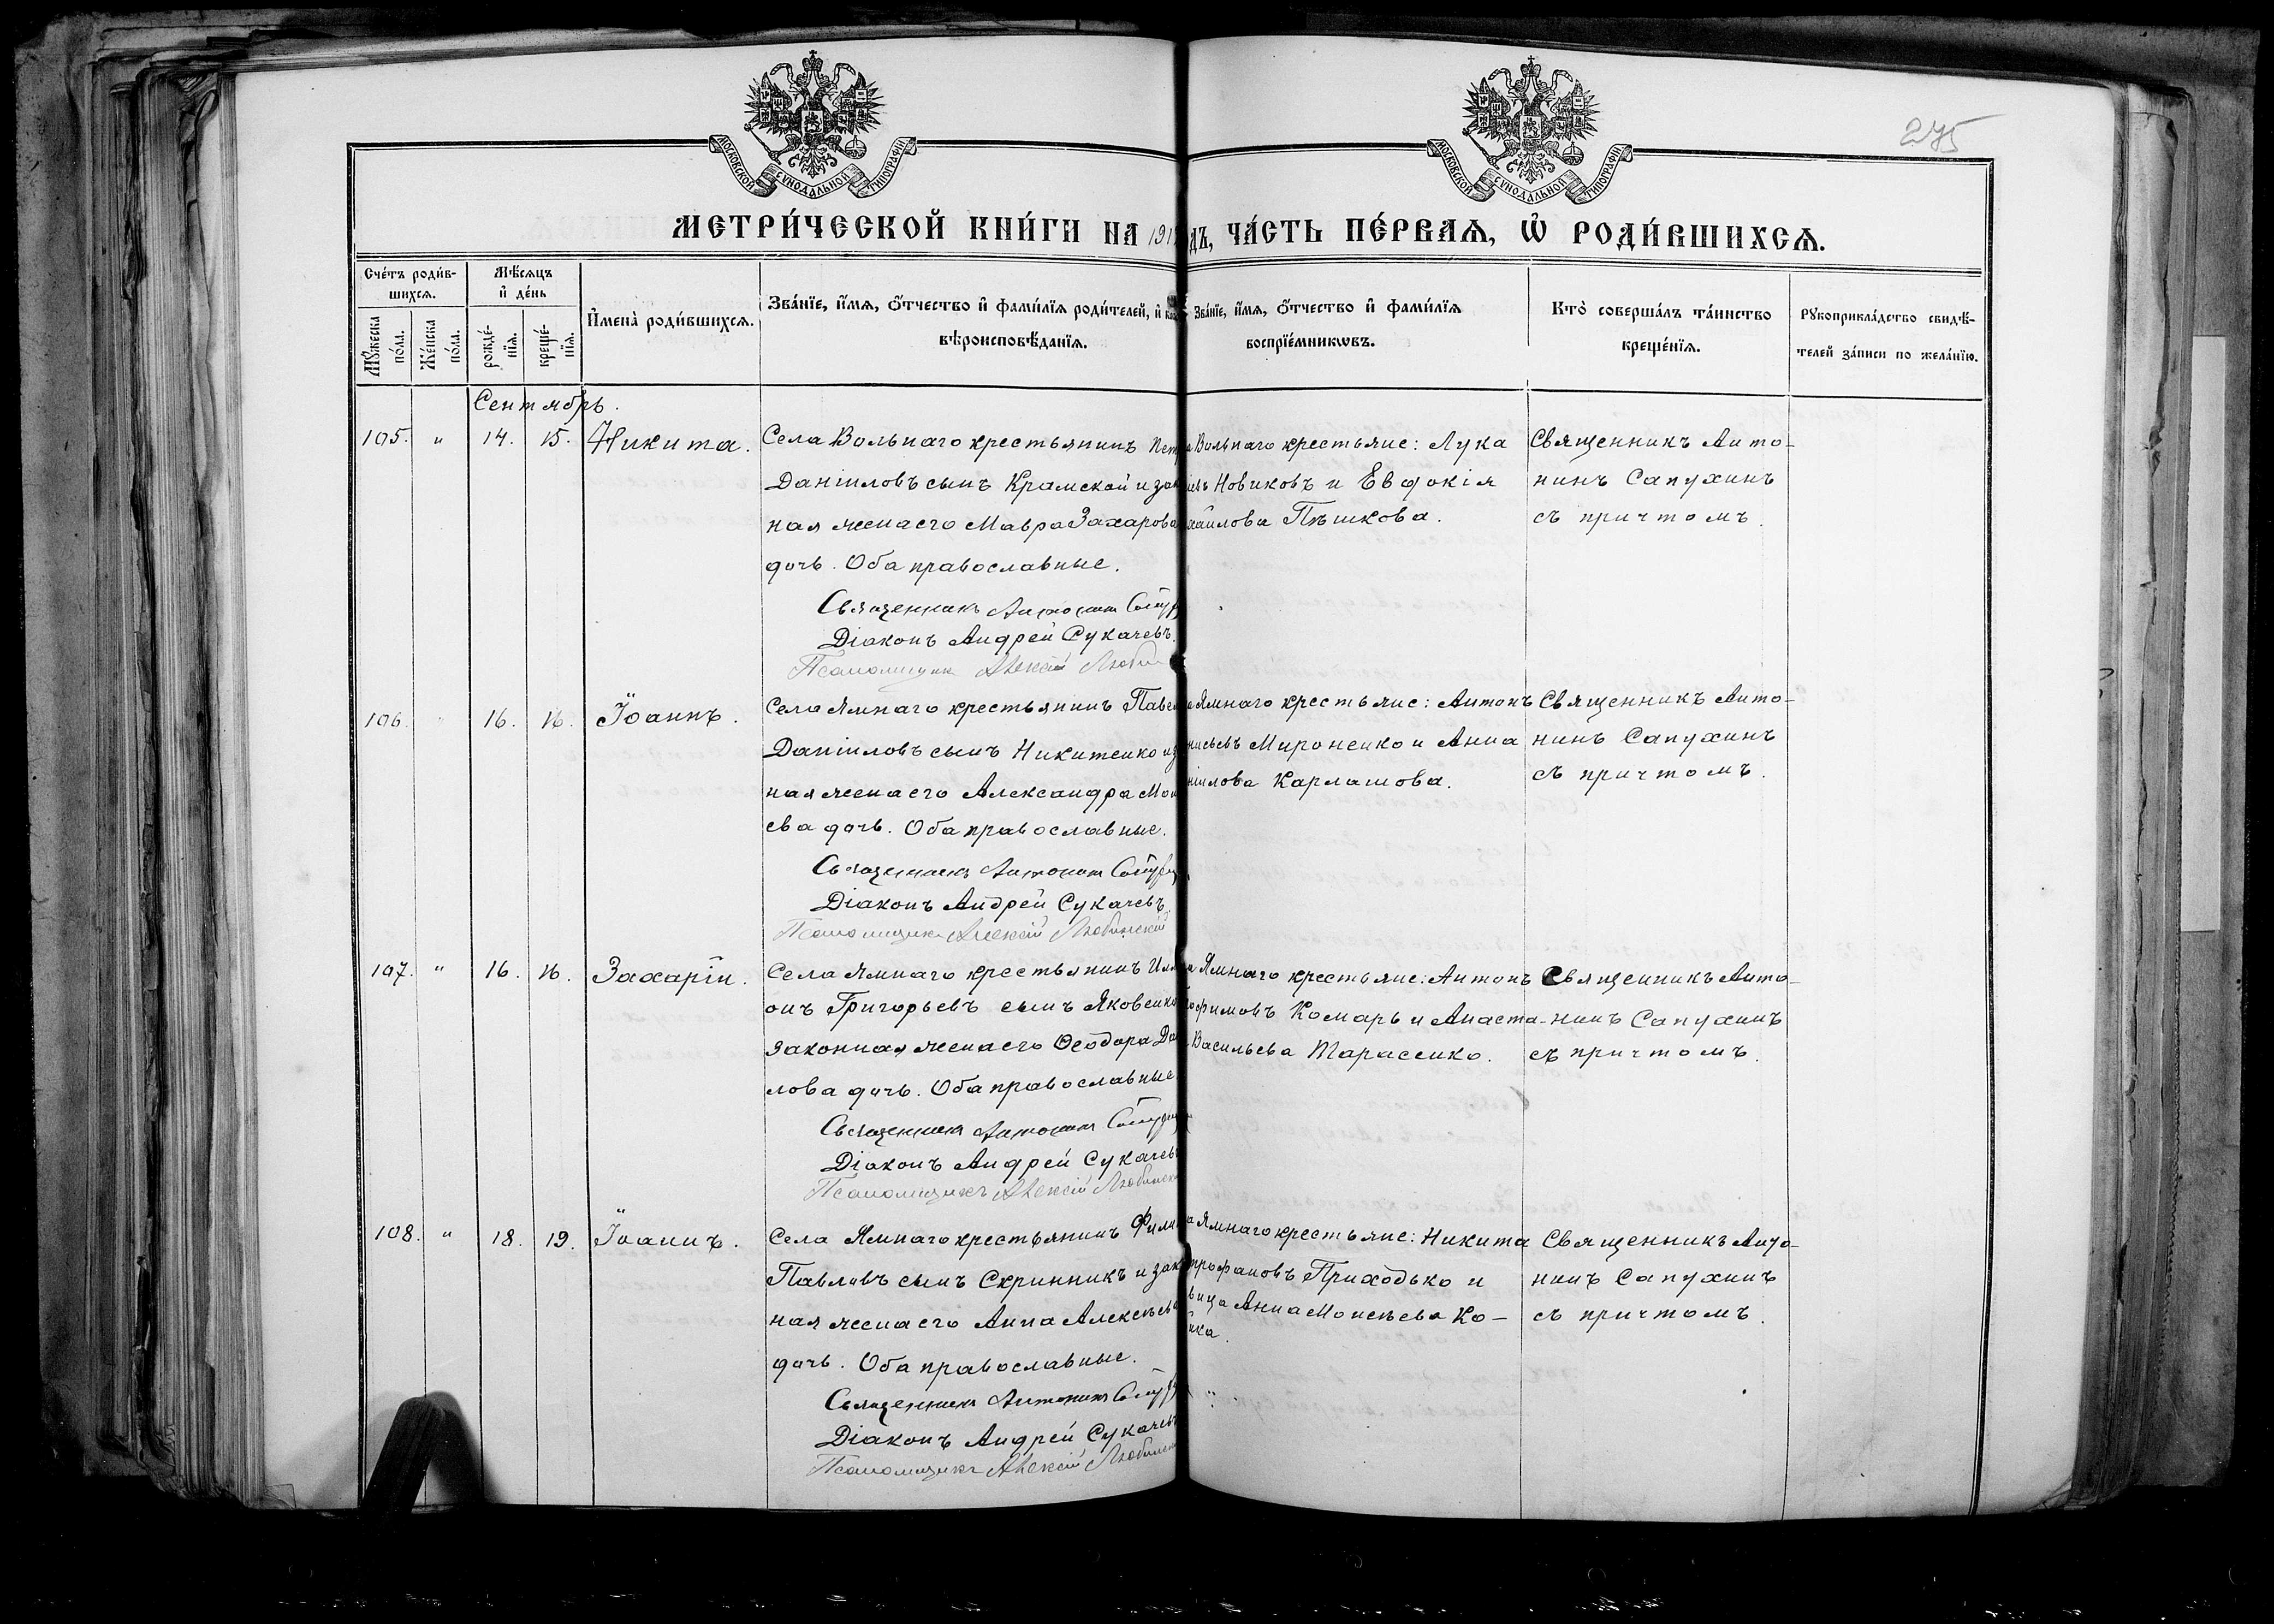 275
МОСКОВСКОЙ СѴНОДАЛЬНОЙ ТИПОГРАФІИ
МОСКОВСКОЙ СѴНОДАЛЬНОЙ ТИПОГРАФІИ
МЕТРИ́ЧЕСКОЙ КНИ́ГИ НА 191 ДЪ, ЧА́СТЬ ПЕ́РВАЯ, Ѡ҆ РОДИ́ВШИХСЯ.
Сче́тъ роди́в-
шихся.
Мѣ́сяцъ
и҆ де́нь
Мꙋ́жеска
по́ла.
Же́нска
по́ла.
рожде́-
нїя.
креще́-
нїя.
И҆мена̀ роди́вшихся.
Зва́нїе, и҆́мя, ѻ҆́тчество и҆ фами́лїя роди́телей, и҆
вѣроисповѣ́данїя.
Зва́нїе, и҆́мя, ѻ҆́тчество и҆ фами́лїя
воспрїе́мникѡвъ.
Кто̀ соверша́лъ та́инство
креще́нїя.
Рꙋкоприкла́дство свидѣ́-
телей за́писи по жела́нїю.
Сентябрь.
105. " 14. 15. Никита.
Села Вольнаго крестьянинъ Пет
Даніиловъ сынъ Крамской и зак
ная жена его Мавра Захарова
дочь. Оба православные.
Священникъ Антонинъ
Діаконъ Андрей Сукачевъ.
Псаломщикъ Алексій Любин
Вольнаго крестьяне: Лука
Новиковъ и Евдокія
хаилова Пѣшкова.
Священникъ Анто-
нинъ Сапухинъ
съ причтомъ.
106. " 16. 16. Іоаннъ.
Села Ямнаго крестьянинъ Павел
Даніиловъ сынъ Никитенко и з
ная жена его Александра Мои
ева дочь. Оба православные.
Священникъ Антонинъ
Діаконъ Андрей Сукачевъ
Псаломщикъ Алексій Любинскій
Ямнаго крестьяне: Антонъ
Мироненко и Анна
ніилова Карлашова.
Священникъ Анто-
нинъ Сапухинъ
съ причтомъ.
107. " 16. 16. Захарій.
Села Ямнаго крестьянинъ Илл
онъ Григорьевъ сынъ Яковенко
законная жена его Ѳеодора Дан
лова дочь. Оба православные.
Священникъ Антонинъ
Діаконъ Андрей Сукачевъ
Псаломщикъ Алексій Любинск
Ямнаго крестьяне: Антонъ
рофимовъ Комарь и Анаста-
Васильева Тарасенко.
Священникъ Анто-
нинъ Сапухинъ
съ причтомъ.
108. " 18. 19. Іоаннъ.
Села Ямнаго крестьянинъ Филип
Павловъ сынъ Скринникъ и зак
ная жена его Анна Алексѣева
дочь. Оба православные.
Священникъ Антонинъ
Діаконъ Андрей Сукачевъ
Псаломщикъ Алексій Любинск
Ямнаго крестьяне: Никита
трофановъ Приходько и
вица Анна Моисѣева Ко-
нка.
Священникъ Анто-
нинъ Сапухинъ
съ причтомъ.